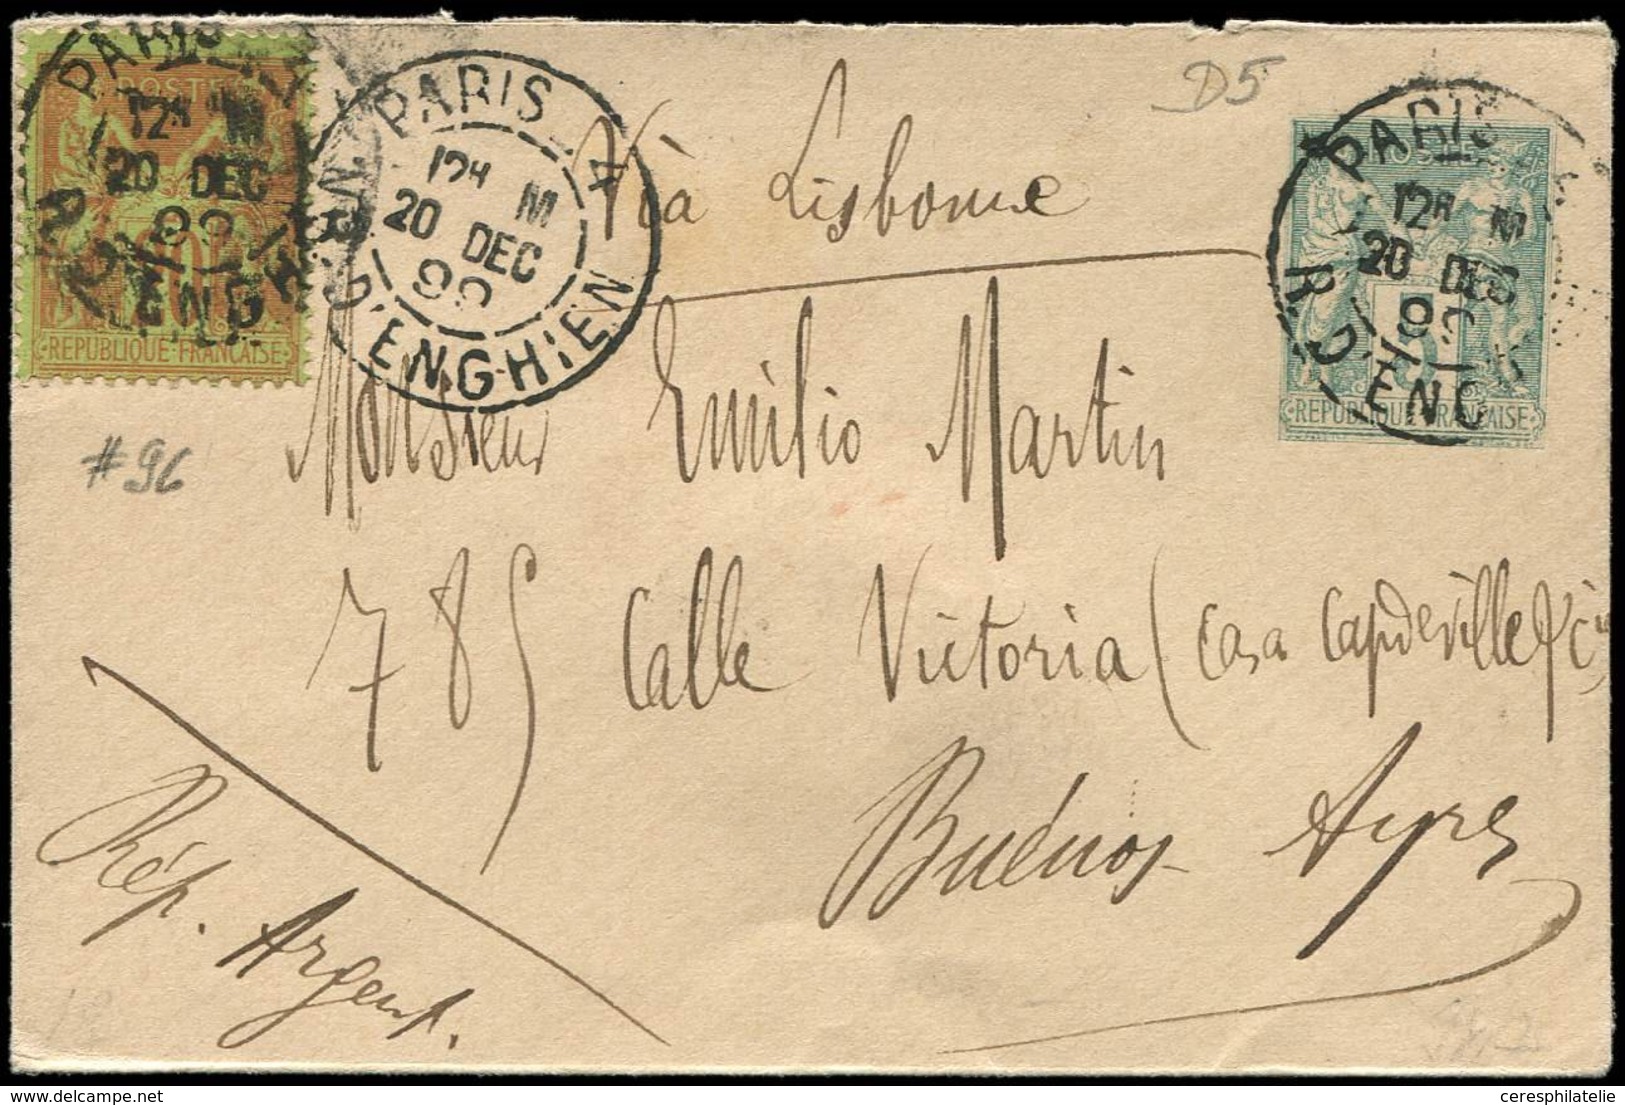 D5
PARIS
12H M
20 DEC
R. D'ENG
POSTE
REPUBLIQUE FRANCAISE
PARIS
12H M
20 DEC
99
R. D'ENGHIEN
Via Lisbonne
PARIS
12H M
20 DEC
99
R. D'ENG
5
REPUBLIQUE FRANCAISE
#96
Monsieur Emilio Martin
785 Calle Victoria (casa Capdeville y Cia
Buénos Ayres
Rép. Argent.
ceresphilatelie